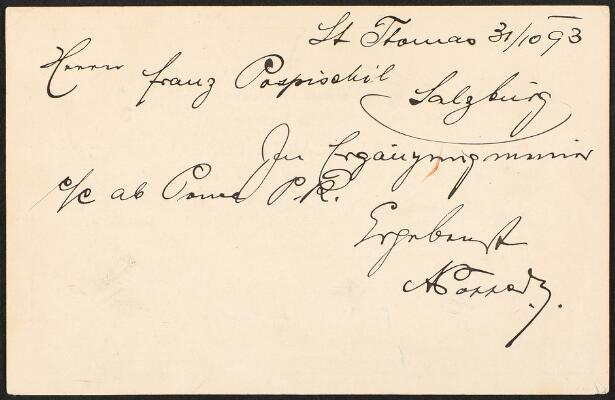 St Thomas 31/10 93
Herrn Franz Pospischil
Salzburg
In Ergänzung meiner
c/c ab Ponce P.R.
Ergebenst